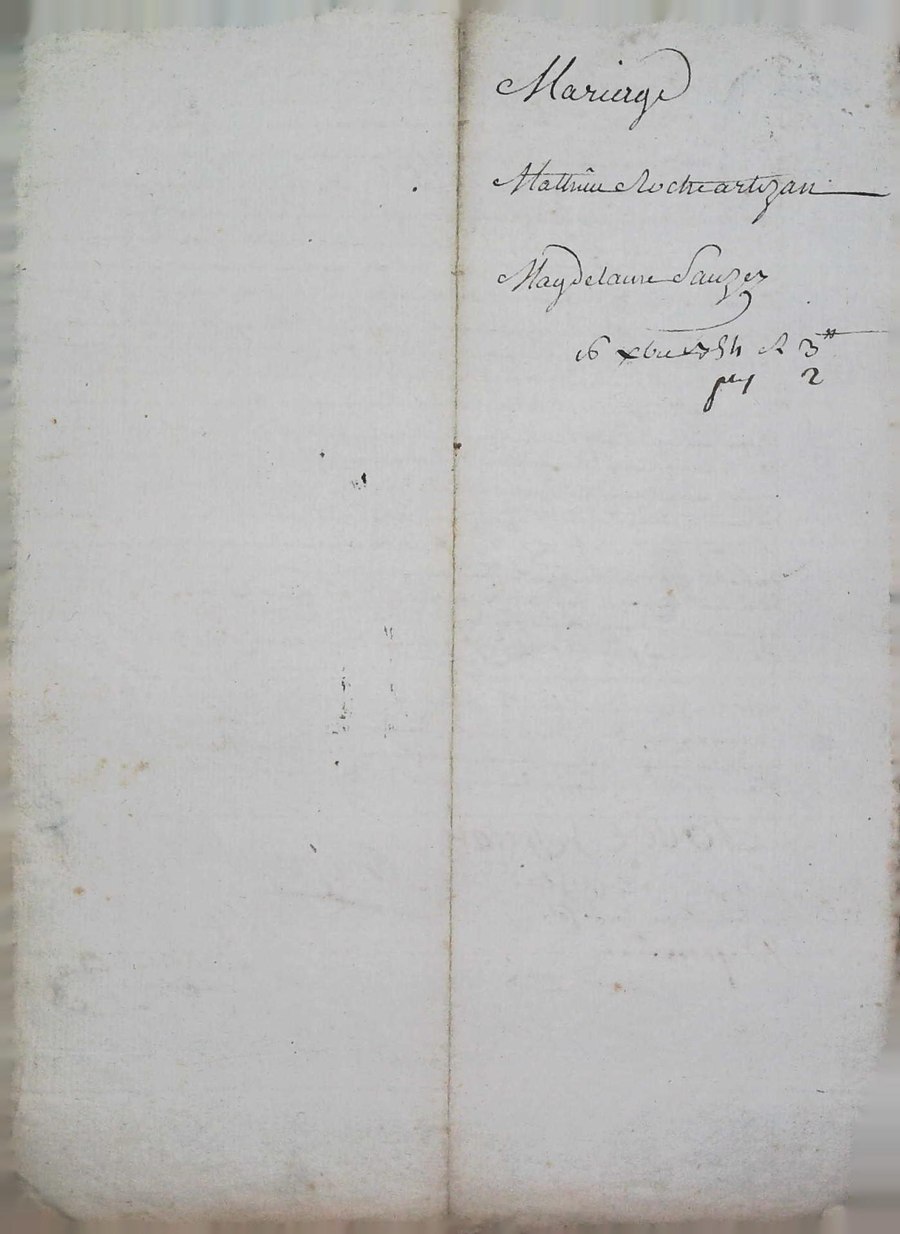 Mariage
Mathieu Roche artizan
Magdelaine Sauzer
16 xbre 1784 R 3
2